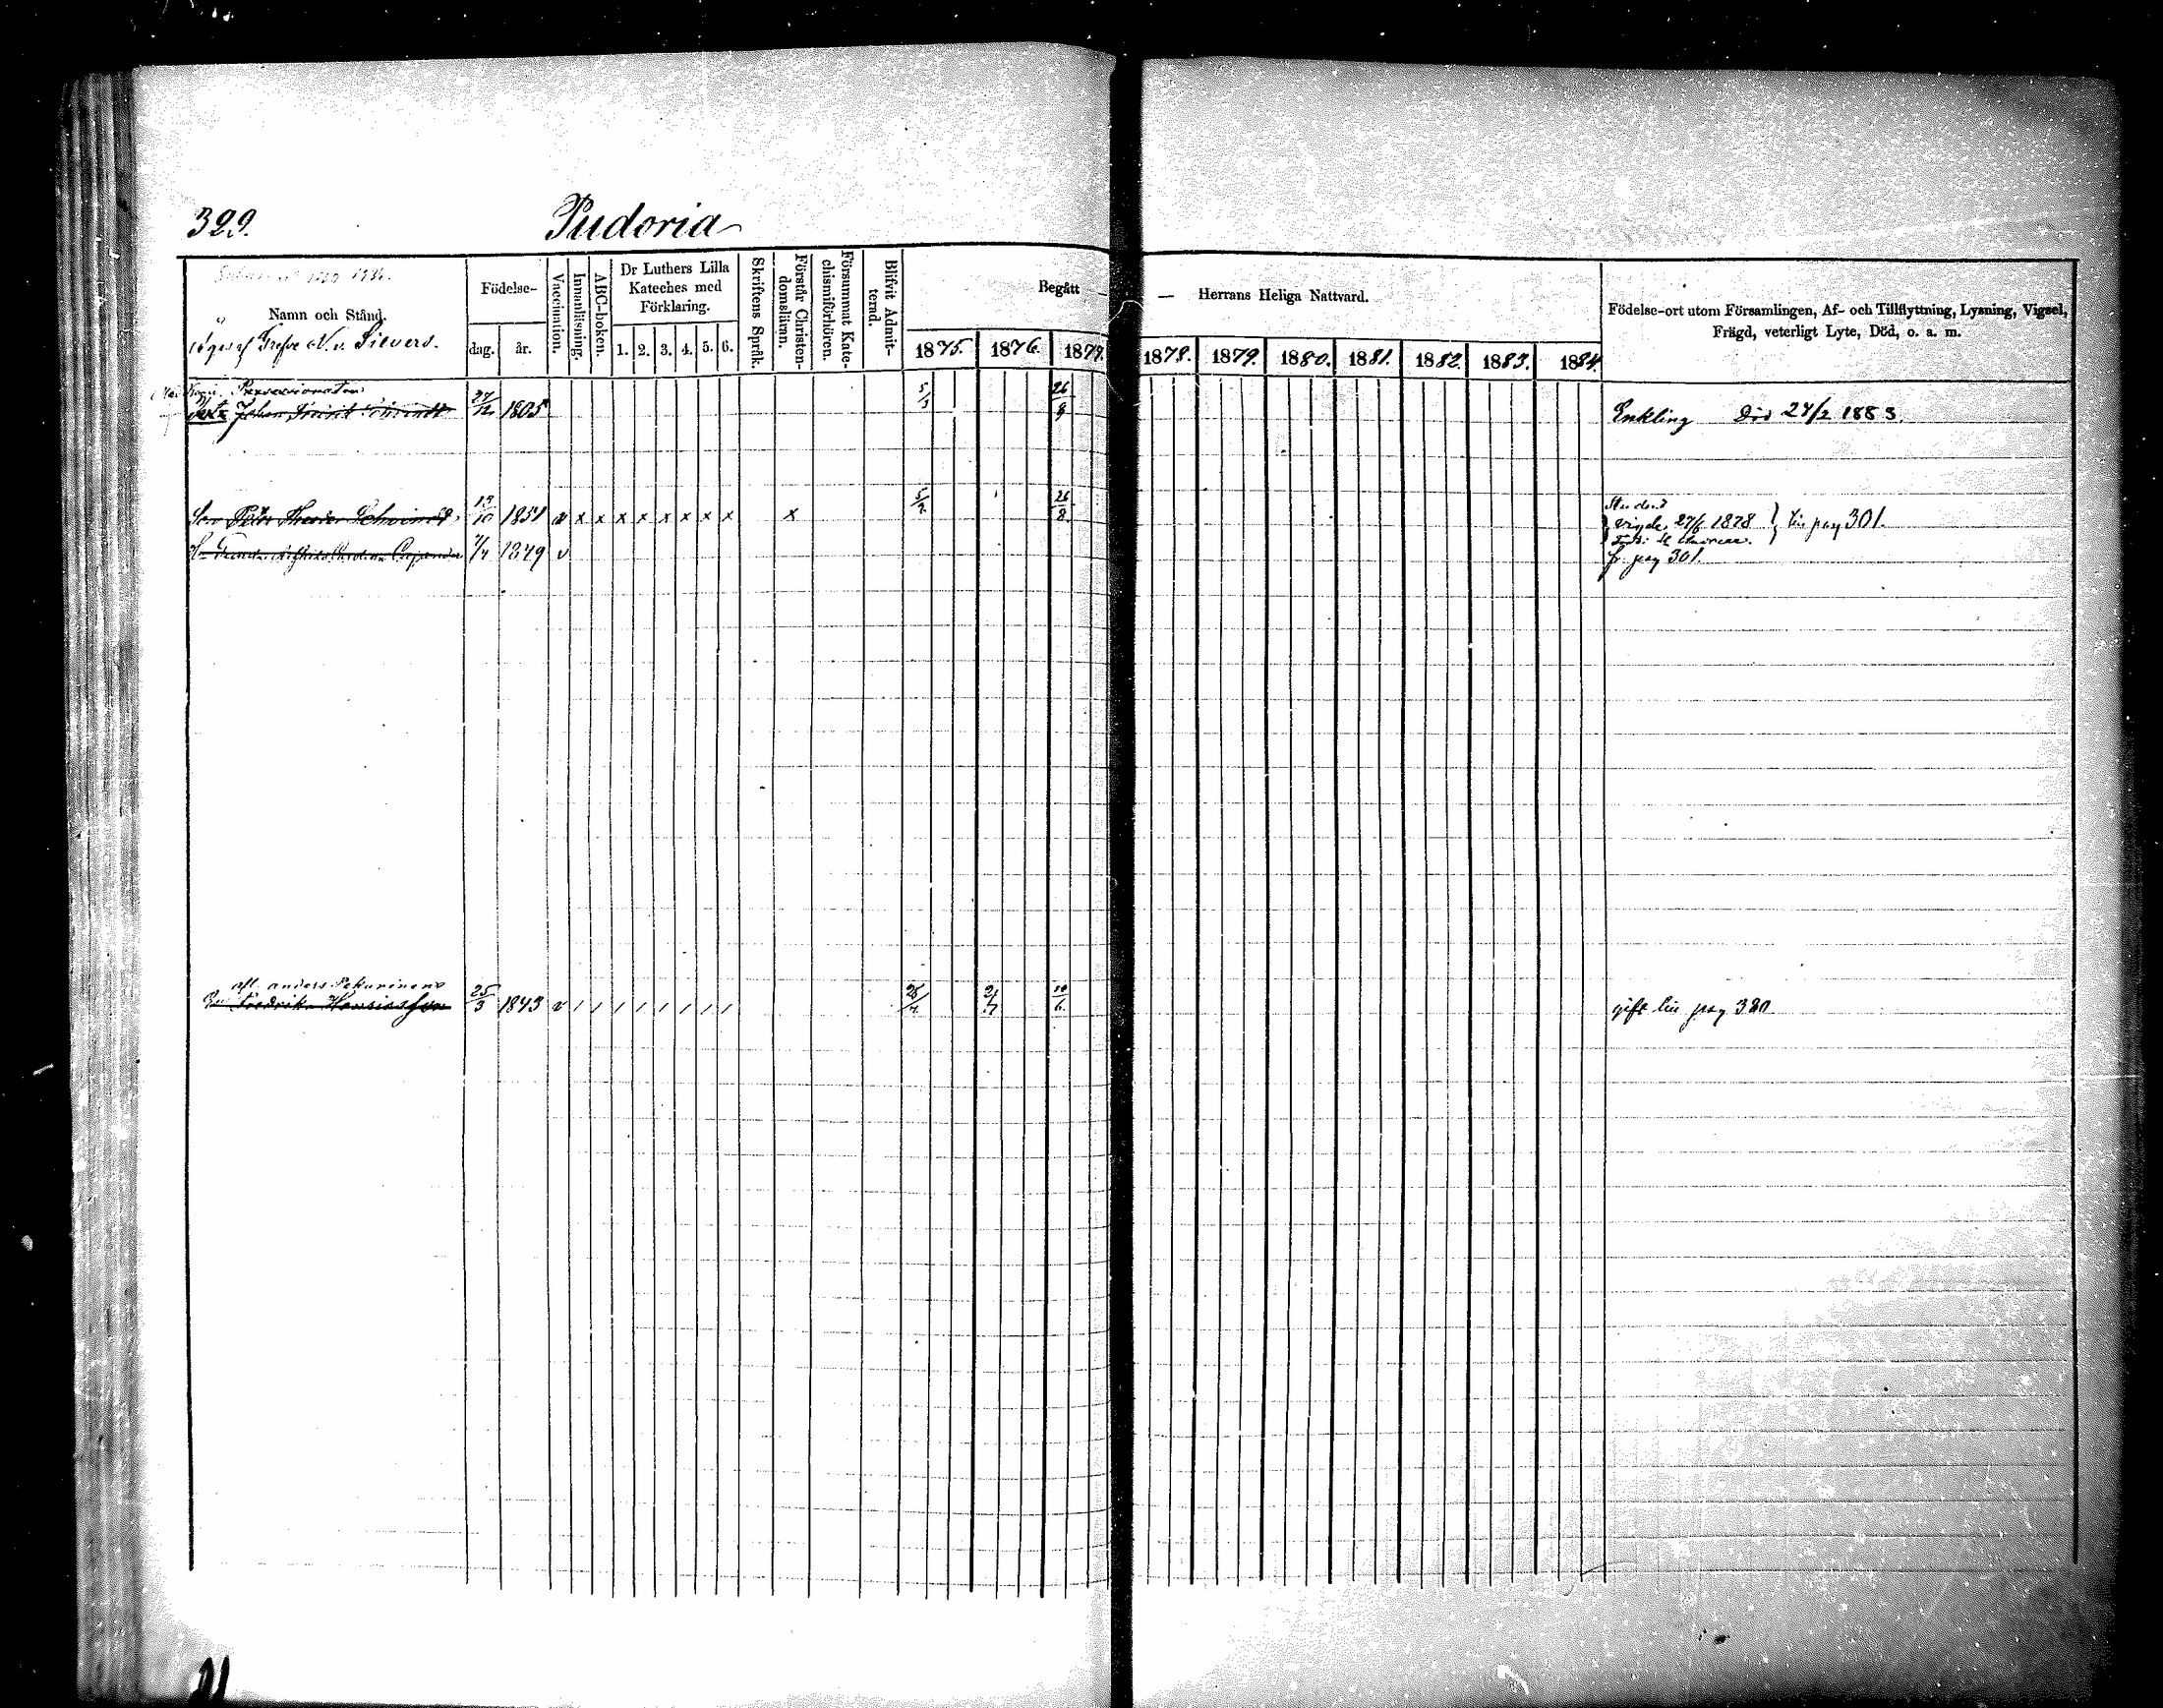 399.
Pudoria
Namn och Stånd.
Grefve N. v. Sievers.
Födelse-
dag.
år.
Vaccination.
Innanläsning.
ABC-boken.
Dr Luthers Lilla
Kateches med
Förklaring.
1. 2. 3. 4. 5. 6.
Skriftens Språk.
Förstår Christen-
domslären.
Försummat Kate-
chismiförhören.
Blifvit Admit-
terad.
Begått — — Herrans Heliga Nattvard.
1875. 1876. 1877. 1878. 1879. 1880. 1881. 1882. 1883. 1884.
Födelse-ort utom Församlingen, Af- och Tillflyttning, Lysning, Vigsel,
Frägd, veterligt Lyte, Död, o. a. m.
Johan 27/12 1805 26/9 Enkling Död 27/2 1883.
Student
Son Peter Schvindt 13/10 1851 v x x x x x x x x x 26/8 vigde 1878 } pag 301.
1849 v fr. pag 301.
afl. anders Pekurinens
Fredrika 25/3 1843 v / / / / / / / / 10/6 gift pag 380